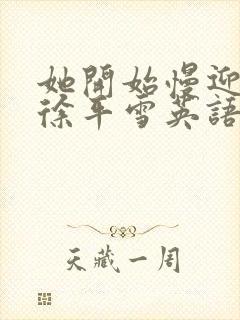 她開始慢迎
徐平雪英語
天藏一周